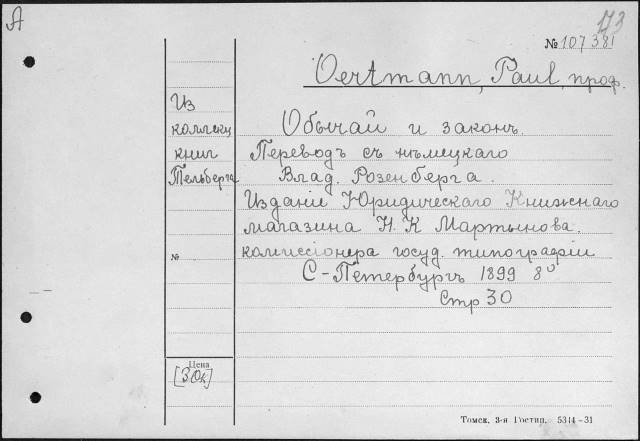 А
173
№ 107381
Oertmann, Paul, проф.
Из
коллекц
книг
Тельберга
Обычай и законъ.
Переводъ съ нѣмецкаго
Влад. Розенберга.
Изданіе Юридическаго Книжнаго
магазина Н. К Мартынова.
комиссіонера госуд. типографіи
№
С-Петербургъ 1899 8°
Стр 30
Цена
[30к]
Томск, 3-я Гостип. 5314-31